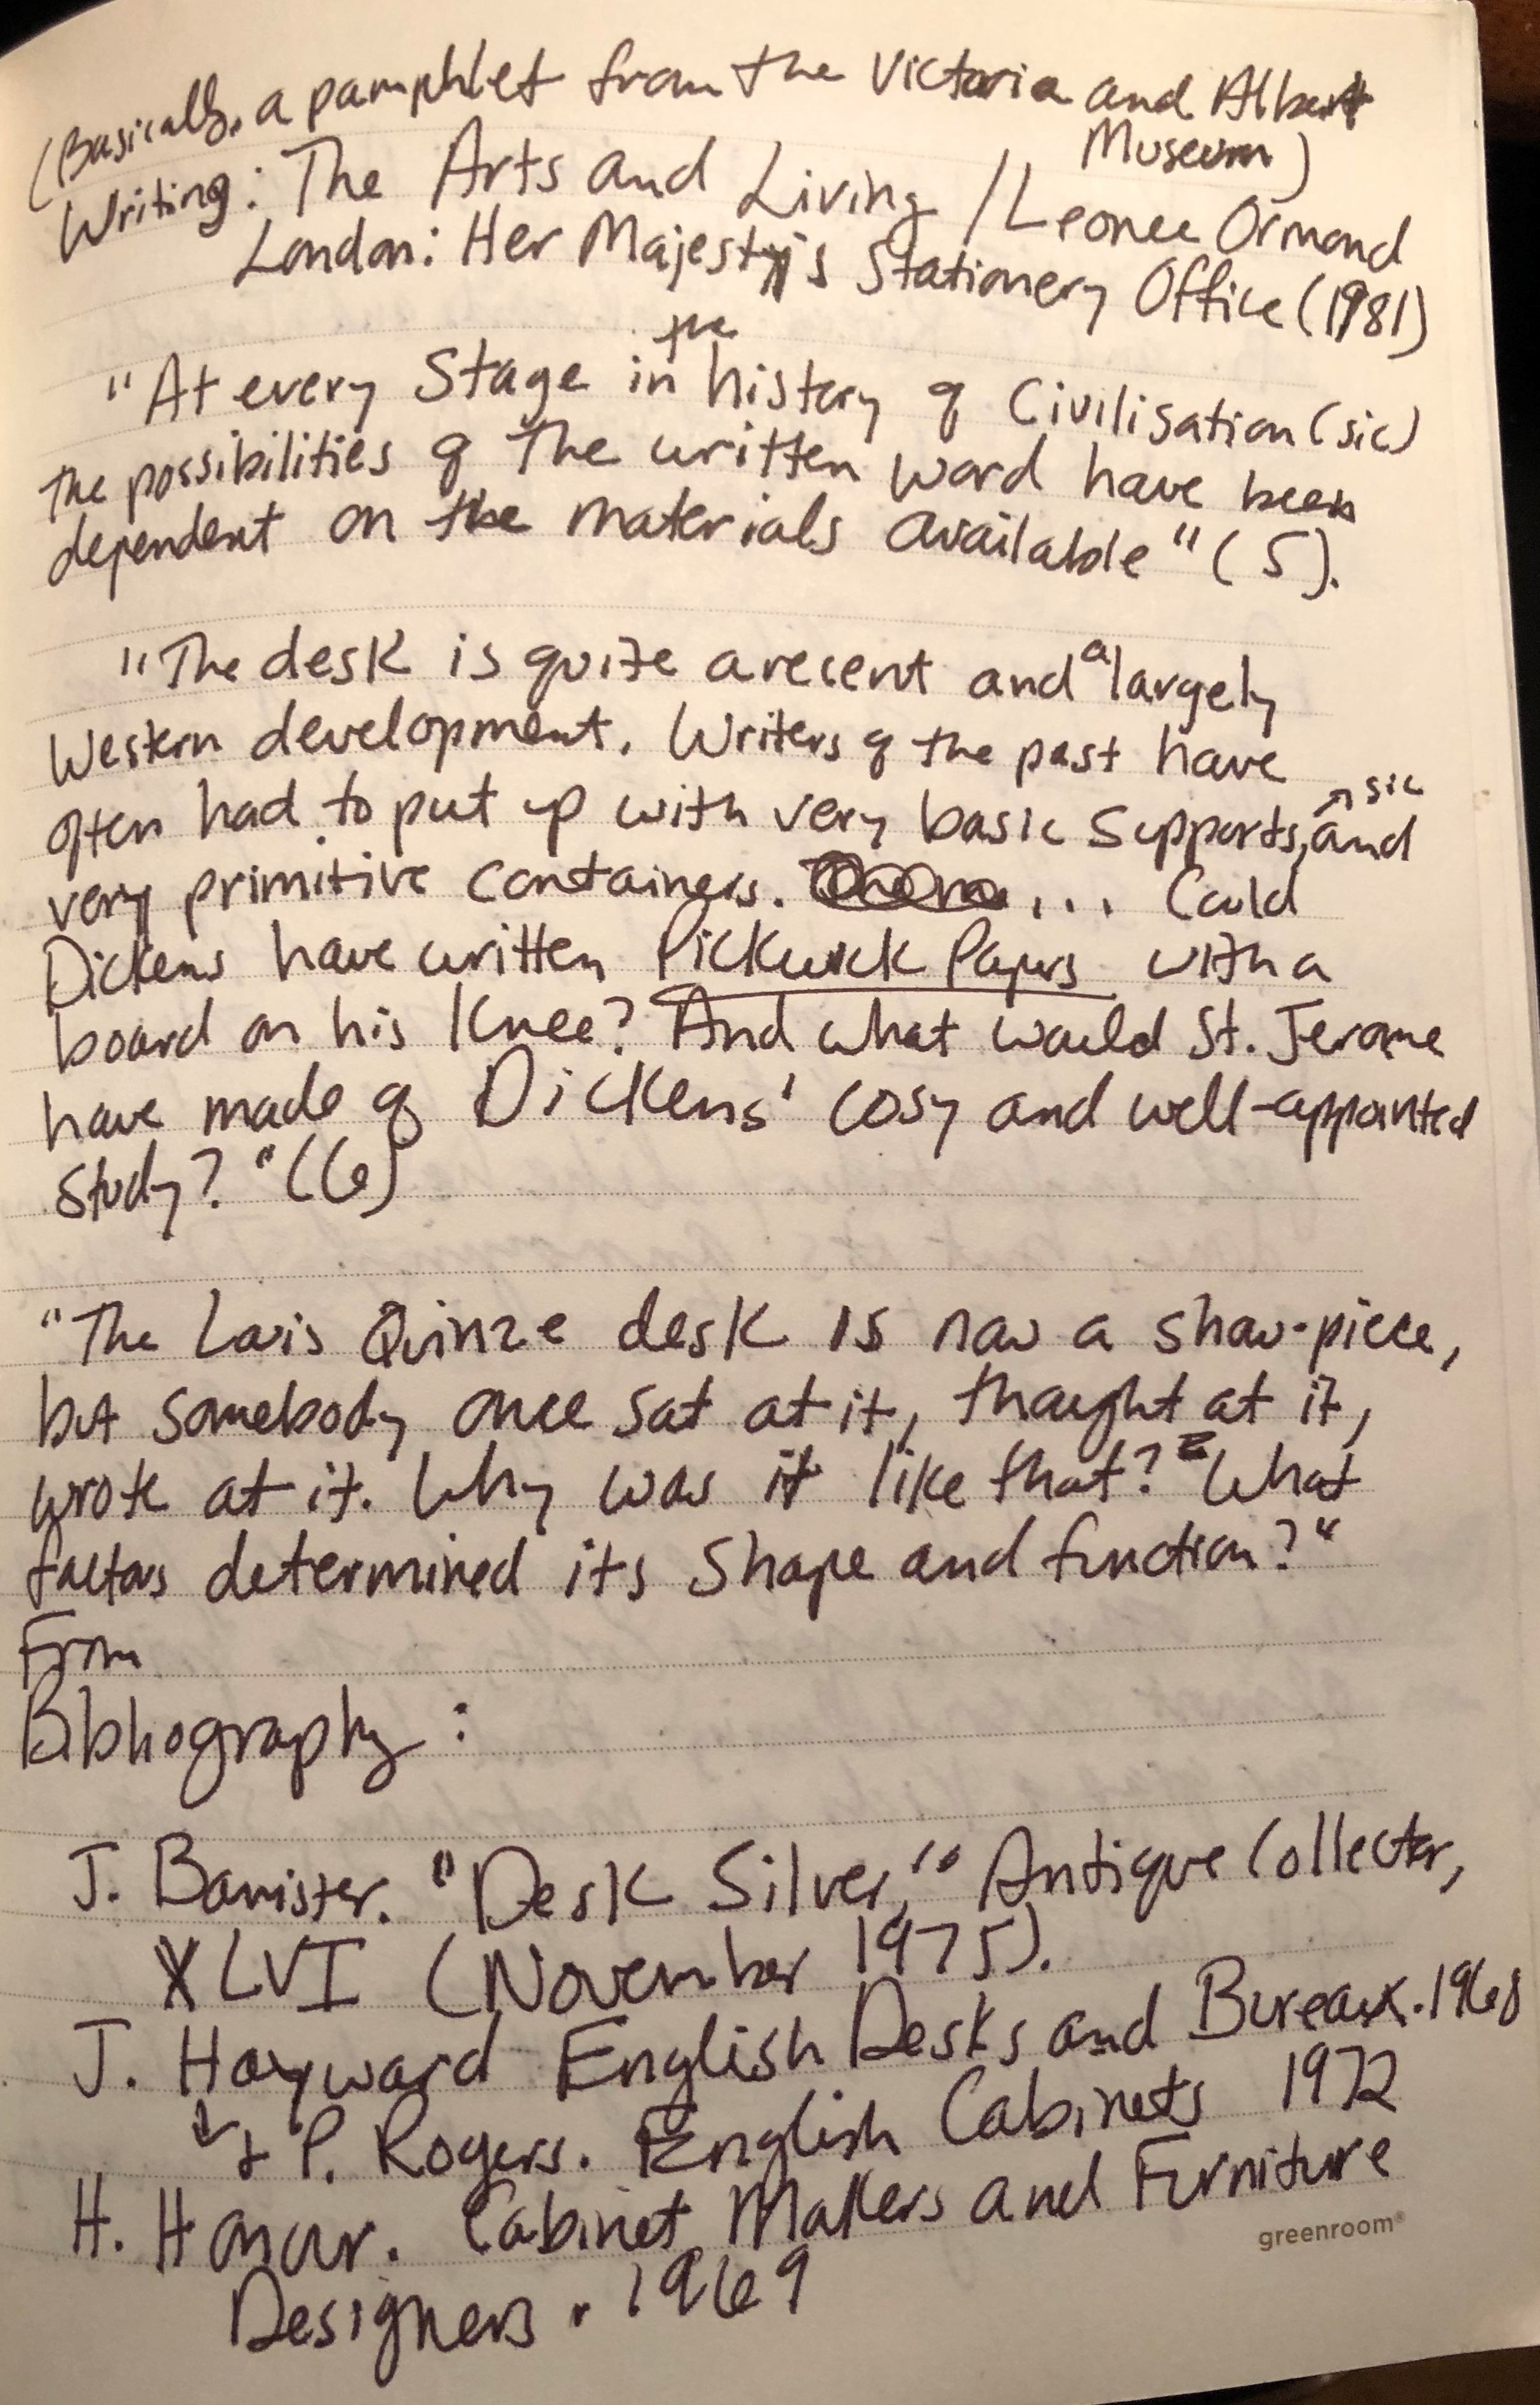 (Basically, a pamphlet from the Victoria and Albert
Museum)
Writing: The Arts and Living / Leonee Ormond
London: Her Majesty's Stationery Office (1981)
"At every Stage in the history of Civilisation (sic)
the possibilities of the written word have been
dependent on the materials available" (5).
"The desk is quite a recent and a largely
Western development. Writers of the past have
often had to put up with very basic supports, and
sic
very primitive containers. ... Could
Dickens have written Pickwick Papers with a
board on his knee? And what would St. Jerome
have made of Dickens' cosy and well-appointed
study?" (6)
"The Louis Quinze desk is now a show-piece,
but somebody once sat at it, thought at it,
wrote at it. Why was it like that? What
factors determined its shape and function?"
From
Bibliography:
J. Banister. "Desk Silver," Antique Collector,
XLVI (November 1975).
J. Hayward English Desks and Bureaux. 1968
+ P. Rogers. English Cabinets 1972
H. Honour. Cabinet Makers and Furniture
Designers. 1969
greenroom®